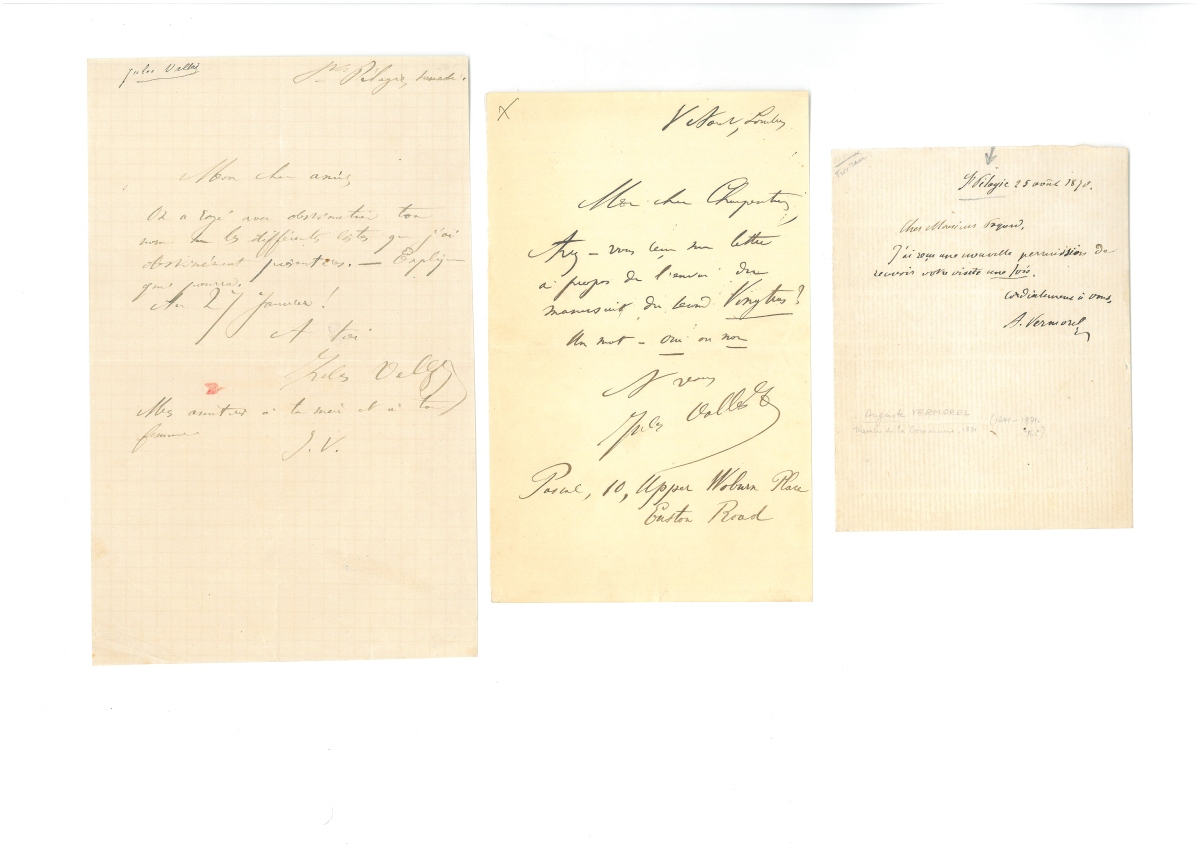 Jules Vallès
Ste Pélagie, samedi.
Mon cher ami,
On a rayé avec obstination ton
nom sur les différentes listes que j'ai
obstinément présentées. — Explique
qui pourra.
Au 27 janvier!
A toi
Jules Vallès
Mes amitiés à ta mère et à ta
femme
J. V.
X
V Août, Londres
Mon cher Charpentier,
Avez-vous reçu ma lettre
à propos de l'envoi du
manuscrit du second Vingtras?
Un mot — oui ou non
A vous
Jules Vallès
Pascal, 10, Upper Woburn Place
Euston Road
Ste Pélagie 25 août 1870.
Cher Monsieur
J'ai reçu une nouvelle permission de
recevoir votre visite une fois.
Cordialement à vous,
A. Vermorel
Auguste VERMOREL
Membre de la Commune, 1871